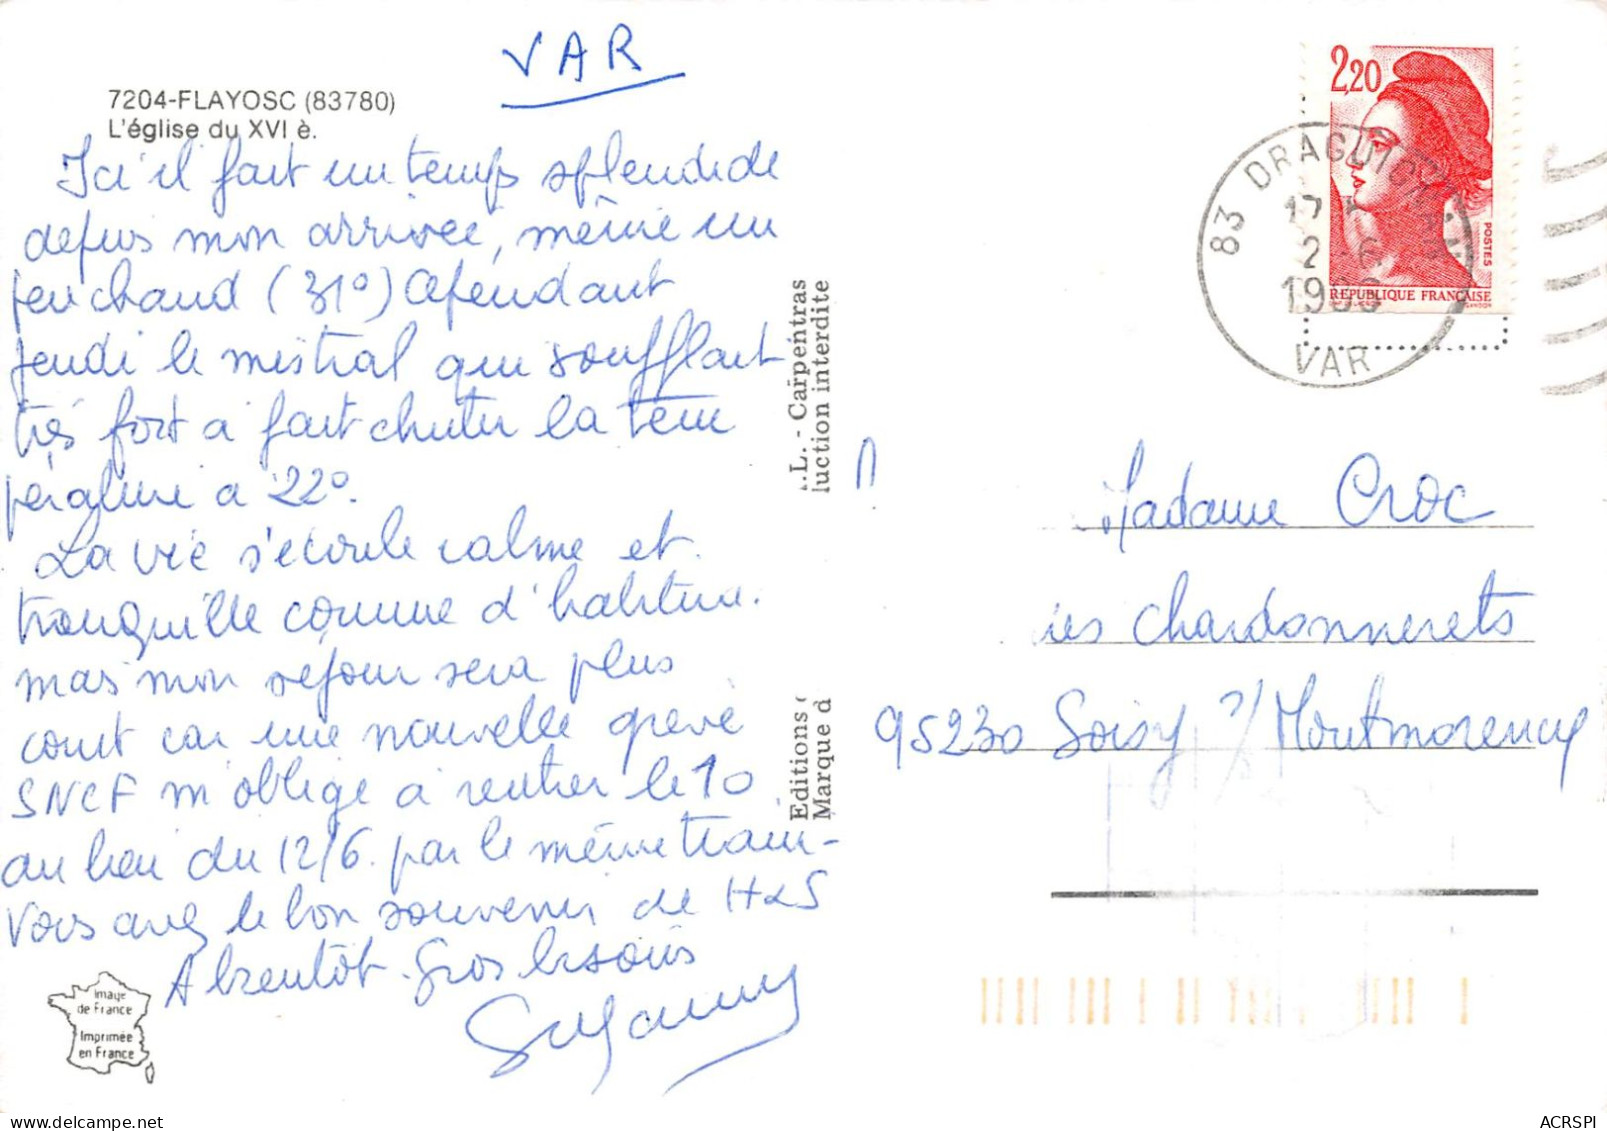 VAR
7204-FLAYOSC (83780)
L'église du XVI è.
Ici il fait un temps splendide
depuis mon arrivée, même un
peu chaud (31°) Cependant
jeudi le mistral qui soufflait
très fort a fait chuter la tem
pérature à 22°.
La vie s'écoule calme et
tranquille comme d'habitude.
mais mon séjour sera plus
court car une nouvelle grève
SNCF m'oblige à rentrer le 10
au lieu du 12/6. par le même train-
Vous avez le bon souvenir de H&S
A bientôt. Gros bisous
Suzanne
Image
de France
Imprimée
en France
.L. - Carpentras
uction interdite
Editions
Marque d
2,20
POSTES
REPUBLIQUE FRANÇAISE
83 DRAGUIGNAN
VAR
Madame Croc
Les Chardonnerets
95230 Soisy s/ Montmorency
ACRSPI